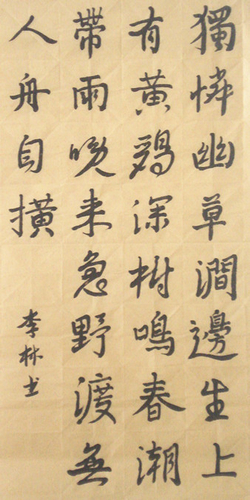 獨憐幽草澗邊生上
有黃鸝深樹鳴春潮
帶雨晚来急野渡無
人舟自橫
李林书